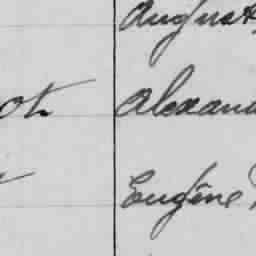 August
ot Alexand
Eugène